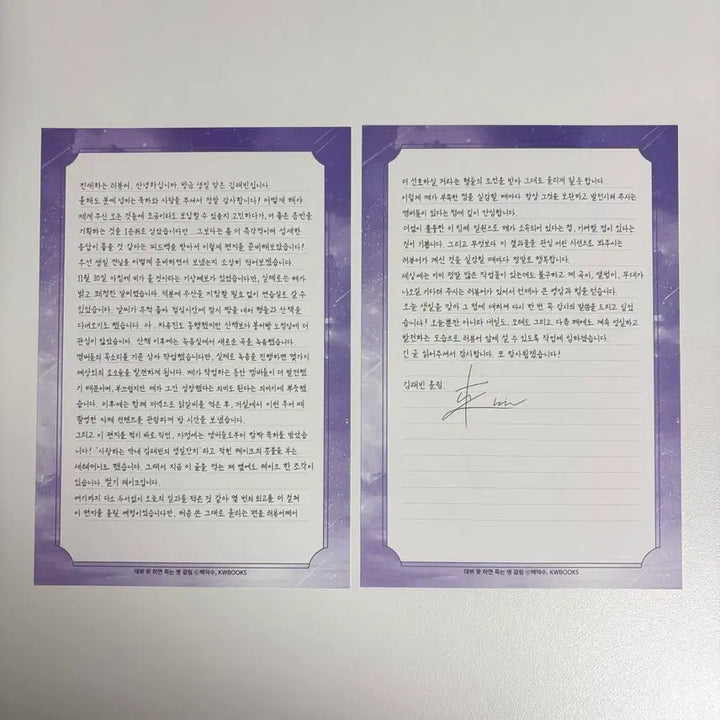 친애하는 러뷰어, 안녕하십니까. 방금 생일 맞은 김래빈입니다.
올해도 분에 넘치는 축하와 사랑을 주셔서 정말 감사합니다! 어떻게 해야
제게 주신 모든 것들에 조금이라도 보답할 수 있을지 고민하다가, 더 좋은 음반을
기획하는 것을 1순위로 삼았습니다만... 그보다는 좀 더 즉각적이며 섬세한
응답이 좋을 것 같다는 피드백을 받아서 이렇게 편지를 준비해보았습니다!
우선 생일 전날을 어떻게 준비하면서 보냈는지 소상히 적어보겠습니다.
11월 10일 아침에 비가 올 것이라는 기상예보가 있었습니다만, 실제로는 해가
밝고 쾌청한 날이었습니다. 덕분에 우산을 지참할 필요 없이 연습실로 갈 수
있었습니다. 날씨가 무척 좋아 점심시간에 잠시 짬을 내어 형들과 산책을
다녀오기도 했습니다. 아, 차유진도 동행했지만 산책보다 붕어빵 노점상에 더
관심이 많았습니다. 산책 이후에는 녹음실에서 새로운 곡을 녹음했습니다.
멤버들의 목소리를 기준 삼아 작업했습니다만, 실제로 녹음을 진행하면 몇가지
예상외의 요소들을 발견하게 됩니다. 제가 작업하는 동안 멤버들이 더 발전했
기 때문이며, 부끄럽지만 제가 그간 성장했다는 의미도 된다는 의미기에 뿌듯했
습니다. 이후에는 함께 저녁으로 닭갈비를 먹은 후, 거실에서 이번 투어 때
촬영한 자체 컨텐츠를 관람하며 밤 시간을 보냈습니다.
그리고 이 편지를 적기 바로 직전, 자정에는 멤버들로부터 깜짝 축하를 받았습
니다! '사랑하는 막내 김래빈의 생일잔치'라고 적힌 케이크의 촛불을 부는
세레머니도 했습니다. 그래서 지금 이 글을 적는 제 옆에도 케이크 한 조각이
있습니다. 딸기 케이크입니다.
여기까지 다소 두서없이 오늘의 일과를 적은 것 같아 몇 번의 퇴고를 더 걸쳐
이 편지를 올릴 예정이었습니다만, 처음 쓴 그대로 올리는 편을 러뷰어께서
더 선호하실 거라는 형들의 조언을 받아 그대로 올리게 될 듯합니다...
이렇게 제가 부족한 점을 실감할 때마다 항상 그것을 보완하고 발전시켜 주시는
멤버들이 있다는 점에 깊이 안심합니다.
더없이 훌륭한 이 팀에 일원으로 제가 소속되어 있다는 점, 기여할 점이 있다는
것이 기쁩니다. 그리고 무엇보다 이 결과물을 관심 어린 시선으로 봐주시는
러뷰어가 계신 것을 실감할 때마다 정말로 행복합니다.
세상에는 이미 정말 많은 작업물이 있는데도 불구하고 제 곡이, 앨범이, 무대가
나오길 기다려 주시는 러뷰어가 있어서 언제나 큰 영감과 힘을 얻습니다.
오늘 생일을 맞아 그 점에 대하여 다시 한 번 꼭 감사의 말씀을 드리고 싶었
습니다! 오늘뿐만 아니라 내일도, 모레도 그리고 다음 해에도 계속 성실하고
발전하는 모습으로 러뷰어 앞에 설 수 있도록 작업에 임하겠습니다.
긴 글 읽어주셔서 감사합니다. 또 찾아뵙겠습니다!
김래빈 올림
데뷔 못 하면 죽는 병 걸림 ⓒ백덕수, KWBOOKS
데뷔 못 하면 죽는 병 걸림 ⓒ백덕수, KWBOOKS